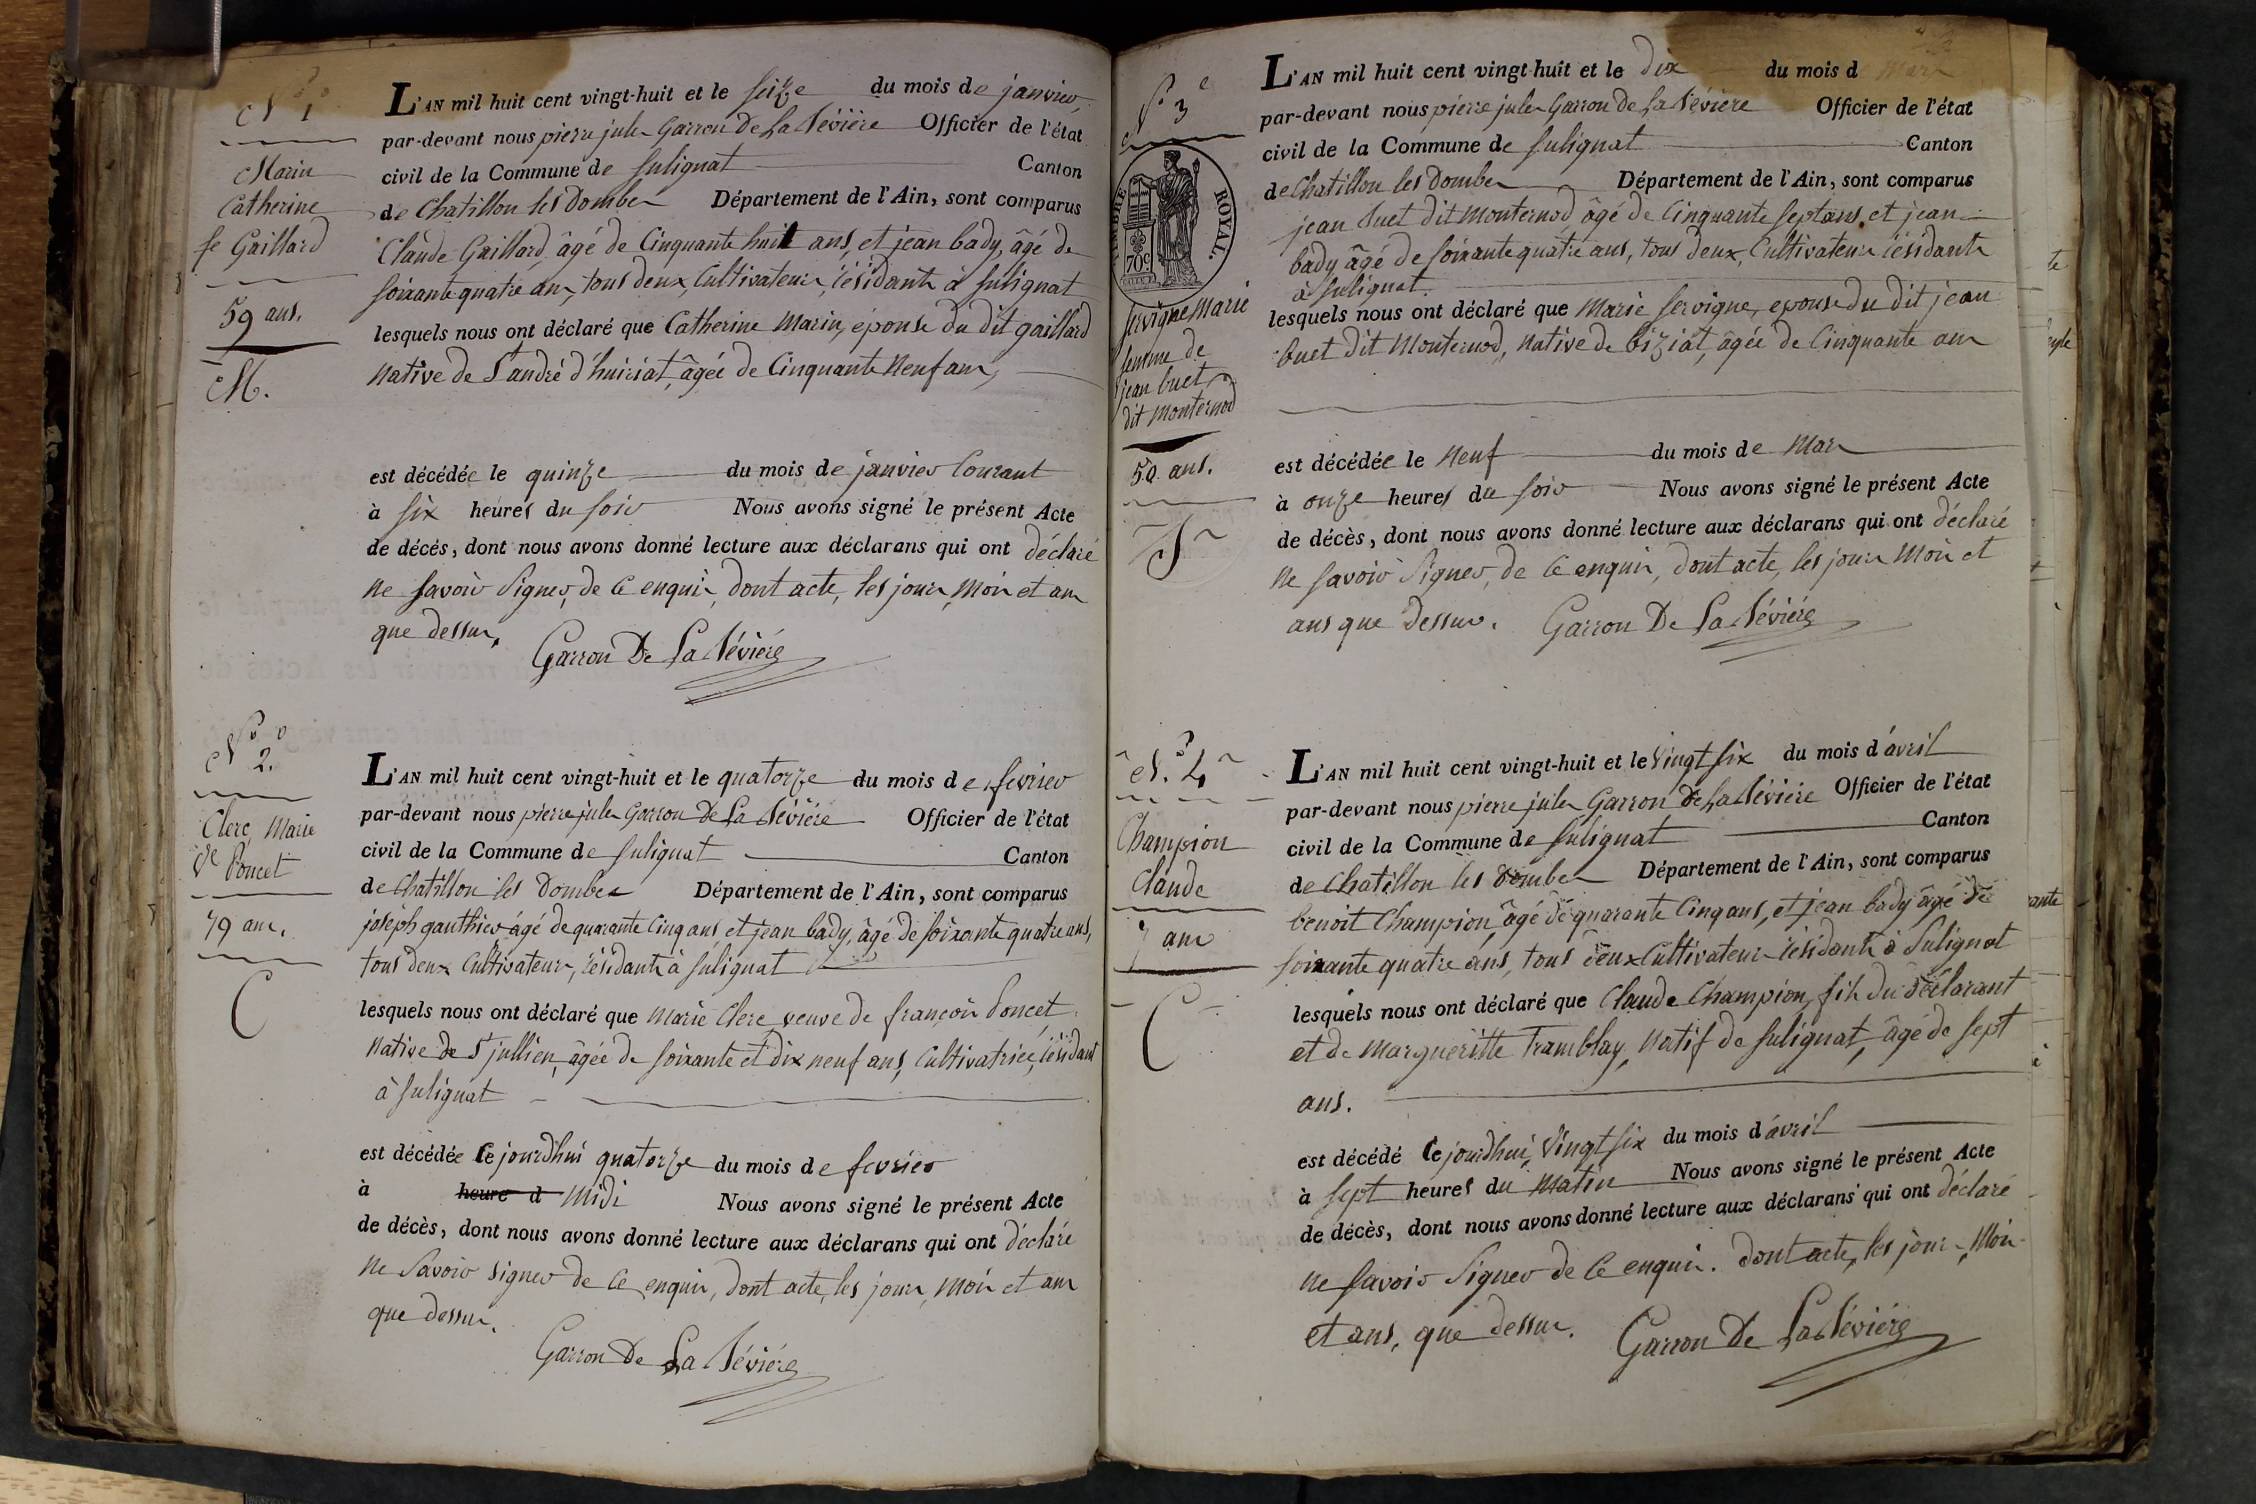 N.° 1
Marin
Catherine
fe Gaillard
59 ans.
M.
L'AN mil huit cent vingt-huit et le seize du mois de janvier,
par-devant nous pierre jules Garron De La Bévière Officier de l'état
civil de la Commune de Sulignat Canton
de Chatillon les Dombes Département de l'Ain, sont comparus
Claude Gaillard, âgé de Cinquante huit ans, et jean bady, âgé de
soixante quatre ans, tous deux, Cultivateurs, résidants à Sulignat
lesquels nous ont déclaré que Catherine Marin, épouse du dit gaillard
Native de St andré d'huiriat, âgée de Cinquante Neuf ans,
est décédée le quinze du mois de janvier Courant
à six heures du soir Nous avons signé le présent Acte
de décès, dont nous avons donné lecture aux déclarans qui ont déclaré
Ne savoir Signer, de Ce enquis, dont acte, les jours, Mois et ans
que dessus,
Garron De La Bévière
N.° 2.
Clerc, Marie
Ve Poncet
79 ans.
C
L'AN mil huit cent vingt-huit et le quatorze du mois de fevrier
par-devant nous pierre jules Garron De La Bévière Officier de l'état
civil de la Commune de Sulignat Canton
de Chatillon les Dombes Département de l'Ain, sont comparus
joseph gauthier âgé de quarante Cinq ans et jean bady, âgé de soixante quatre ans,
tous deux Cultivateurs, résidants à Sulignat
lesquels nous ont déclaré que Marie Clerc veuve de françois Poncet
Native de St jullien, âgée de soixante et dix neuf ans, Cultivatrice, résidant
à Sulignat
est décédée Cejourdhui quatorze du mois de fevrier
à heure d Midi Nous avons signé le présent Acte
de décès, dont nous avons donné lecture aux déclarans qui ont déclaré
Ne Savoir Signer de Ce enquis, dont acte, les jours, Mois et ans
que dessus.
Garron De La Bévière
N.° 3
TIMBRE ROYAL.
70c.
Servigne Marie
femme de
jean buet
dit Monternod
50 ans.
S
L'AN mil huit cent vingt-huit et le dix du mois d Mars
par-devant nous pierre jules Garron De La Bévière Officier de l'état
civil de la Commune de Sulignat Canton
de Chatillon les Dombes Département de l'Ain, sont comparus
jean buet dit Monternod âgé de Cinquante Sept ans, et jean
bady, âgé de soixante quatre ans, tous deux, Cultivateurs résidants
à Sulignat.
lesquels nous ont déclaré que Marie Servigne, epouse du dit jean
buet dit Monternod, Native de biziat, âgée de Cinquante ans
est décédée le Neuf du mois de Mars
à onze heures du soir Nous avons signé le présent Acte
de décès, dont nous avons donné lecture aux déclarans qui ont déclaré
Ne savoir Signer, de Ce enquis, dont acte, les jours Mois et
ans que Dessus.
Garron De La Bévière
N.° 4
Champion
Claude
7 ans
C
L'AN mil huit cent vingt-huit et le Vingt six du mois d'avril
par-devant nous pierre jules Garron De La Bévière Officier de l'état
civil de la Commune de Sulignat Canton
de Chatillon les Dombes Département de l'Ain, sont comparus
benoit Champion, âgé de quarante Cinq ans, et jean bady âgé de
soixante quatre ans, tous deux Cultivateurs résidants à Sulignat
lesquels nous ont déclaré que Claude Champion, fils du déclarant
et de Margueritte Tramblay, Natif de Sulignat, âgé de Sept
ans.
est décédé Cejourdhui, Vingt six du mois d'avril
à sept heures du Matin Nous avons signé le présent Acte
de décès, dont nous avons donné lecture aux déclarans qui ont déclaré
Ne savoir Signer de Ce enquis. dont acte, les jours, Mois
et ans, que dessus.
Garron De La Bévière